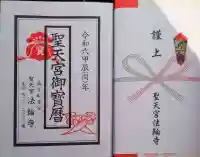 令和六甲辰閏年
聖天宮御寶暦
聖天宮法輪寺
謹上
聖天宮法輪寺